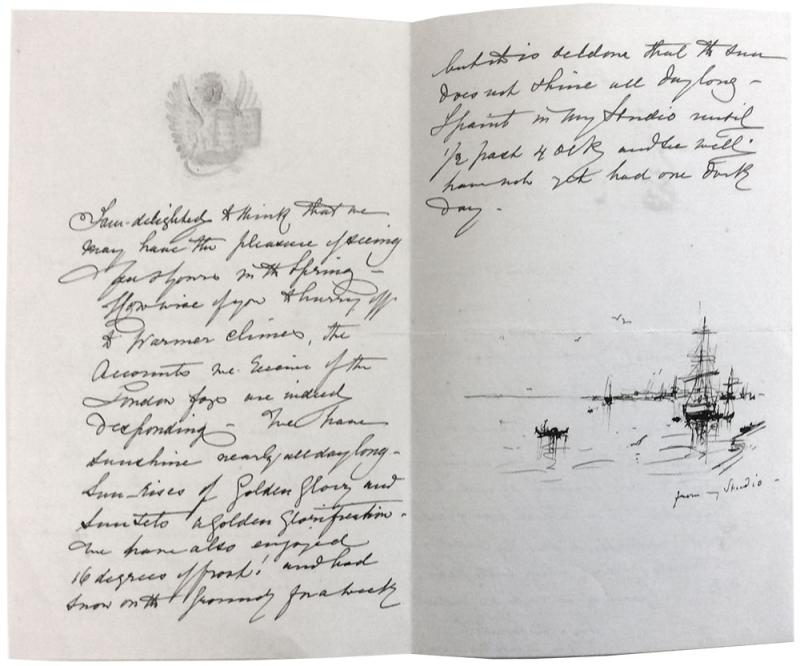 I am delighted to think that we
may have the pleasure of seeing
you & yours in the Spring –
How wise of you to hurry off
to Warmer climes, the
Accounts we receive of the
London fogs are indeed
desponding – We have
sunshine nearly all day long –
Sun-rises of Golden Glory and
Sunsets a Golden Glorification –
We have also enjoyed
16 degrees of frost! and had
snow on the Ground for a week
but it is seldom that the sun
does not shine all day long –
I paint in my Studio until
1/2 past 4 oclk and we
have not yet had one dark
day –
from my Studio –